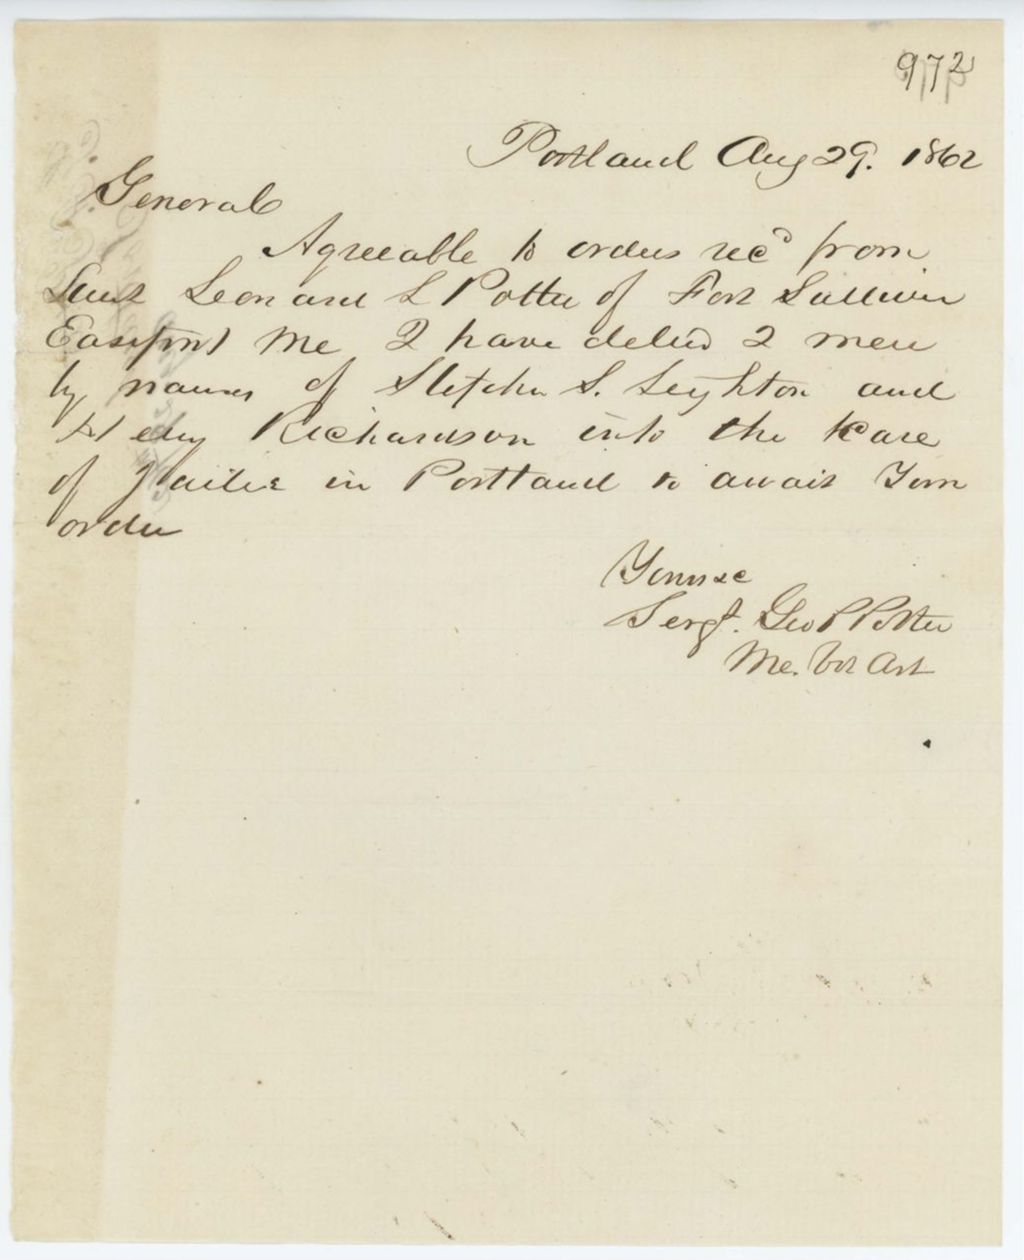 972
Portland Aug 29. 1862
General
Agreeable to orders recd from
Lieut Leonard L Potter of Fort Sullivan
Eastport Me I have delivd 2 men
by names of Stephen S. Leighton and
Richardson into the Care
of Jailer in Portland to await Your
order
Yours &c
Sergt. Geo P Potter
Me. Vol Art